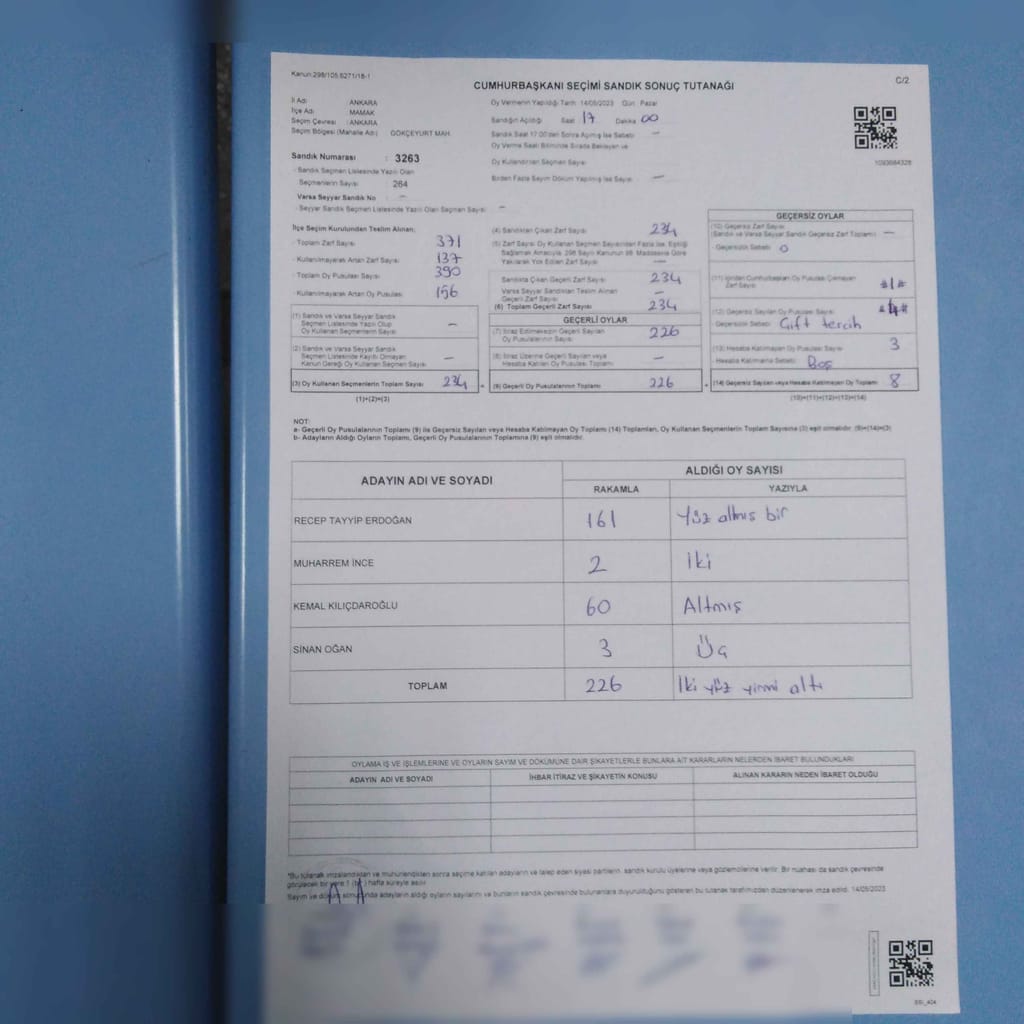 Kanun:298/105,6271/18-1
C/2
CUMHURBAŞKANI SEÇİMİ SANDIK SONUÇ TUTANAĞI
İl Adı : ANKARA
İlçe Adı : MAMAK
Seçim Çevresi : ANKARA
Seçim Bölgesi (Mahalle Adı) : GÖKÇEYURT MAH.
Sandık Numarası : 3263
Sandık Seçmen Listesinde Yazılı Olan
Seçmenlerin Sayısı 264
Varsa Seyyar Sandık No : -
Seyyar Sandık Seçmen Listesinde Yazılı Olan Seçmen Sayısı -
Oy Vermenin Yapıldığı Tarih :14/05/2023 Gün : Pazar
Sandığın Açıldığı Saat 17 Dakika 00
Sandık Saat 17.00'den Sonra Açılmış İse Sebebi -
Oy Verme Saati Bitiminde Sırada Bekleyen ve
Oy Kullandırılan Seçmen Sayısı
Birden Fazla Sayım Döküm Yapılmış İse Sayısı -
1093684328
İlçe Seçim Kurulundan Teslim Alınan;
Toplam Zarf Sayısı 371
Kullanılmayarak Artan Zarf Sayısı 137
Toplam Oy Pusulası Sayısı 390
Kullanılmayarak Artan Oy Pusulası 156
(1) Sandık ve Varsa Seyyar Sandık
Seçmen Listesinde Yazılı Olup
Oy Kullanan Seçmenlerin Sayısı -
(2) Sandık ve Varsa Seyyar Sandık
Seçmen Listesinde Kayıtlı Olmayan
Kanun Gereği Oy Kullanan Seçmen Sayısı -
(3) Oy Kullanan Seçmenlerin Toplam Sayısı 234
(1)+(2)=(3)
(4) Sandıktan Çıkan Zarf Sayısı 234
(5) Zarf Sayısı Oy Kullanan Seçmen Sayısından Fazla ise, Eşitliği
Sağlamak Amacıyla, 298 Sayılı Kanunun 98. Maddesine Göre
Yakılarak Yok Edilen Zarf Sayısı -
Sandıkta Çıkan Geçerli Zarf Sayısı 234
Varsa Seyyar Sandıktan Teslim Alınan
Geçerli Zarf Sayısı -
(6) Toplam Geçerli Zarf Sayısı 234
GEÇERLİ OYLAR
(7) İtiraz Edilmeksizin Geçerli Sayılan
Oy Pusulalarının Sayısı 226
(8) İtiraz Üzerine Geçerli Sayılan veya
Hesaba Katılan Oy Pusulası Toplamı -
= (9) Geçerli Oy Pusulalarının Toplamı 226
GEÇERSİZ OYLAR
(10) Geçersiz Zarf Sayısı
(Sandık ve Varsa Seyyar Sandık Geçersiz Zarf Toplamı) -
Geçersizlik Sebebi: 0
(11) İçinden Cumhurbaşkanı Oy Pusulası Çıkmayan
Zarf Sayısı #1#
(12) Geçersiz Sayılan Oy Pusulası Sayısı #4#
Geçersizlik Sebebi: Çift tercih
(13) Hesaba Katılmayan Oy Pusulası Sayısı 3
Hesaba Katılmama Sebebi: Boş
+ (14) Geçersiz Sayılan veya Hesaba Katılmayan Oy Toplamı 8
(10)+(11)+(12)+(13)=(14)
NOT:
a- Geçerli Oy Pusulalarının Toplamı (9) ile Geçersiz Sayılan veya Hesaba Katılmayan Oy Toplamı (14) Toplamları, Oy Kullanan Seçmenlerin Toplam Sayısına (3) eşit olmalıdır. (9)+(14)=(3)
b- Adayların Aldığı Oyların Toplamı, Geçerli Oy Pusulalarının Toplamına (9) eşit olmalıdır.
ADAYIN ADI VE SOYADI
ALDIĞI OY SAYISI
RAKAMLA YAZIYLA
RECEP TAYYİP ERDOĞAN 161 Yüz altmış bir
MUHARREM İNCE 2 İki
KEMAL KILIÇDAROĞLU 60 Altmış
SİNAN OĞAN 3 Üç
TOPLAM 226 İki yüz yirmi altı
OYLAMA İŞ VE İŞLEMLERİNE VE OYLARIN SAYIM VE DÖKÜMÜNE DAİR ŞİKAYETLERLE BUNLARA AİT KARARLARIN NELERDEN İBARET BULUNDUKLARI
ADAYIN ADI VE SOYADI İHBAR İTİRAZ VE ŞİKAYETİN KONUSU ALINAN KARARIN NEDEN İBARET OLDUĞU
*Bu tutanak imzalandıktan ve mühürlendikten sonra seçime katılan adayların ve talep eden siyasi partilerin, sandık kurulu üyelerine veya gözlemcilerine verilir. Bir nüshası da sandık çevresinde
görülecek bir yere 1 (bir) hafta süreyle asılır.
Sayım ve döküm sonucunda adayların aldığı oyların sayılarını ve bunların sandık çevresinde bulunanlara duyurulduğunu gösteren bu tutanak tarafımızdan düzenlenerek imza edildi. 14/05/2023